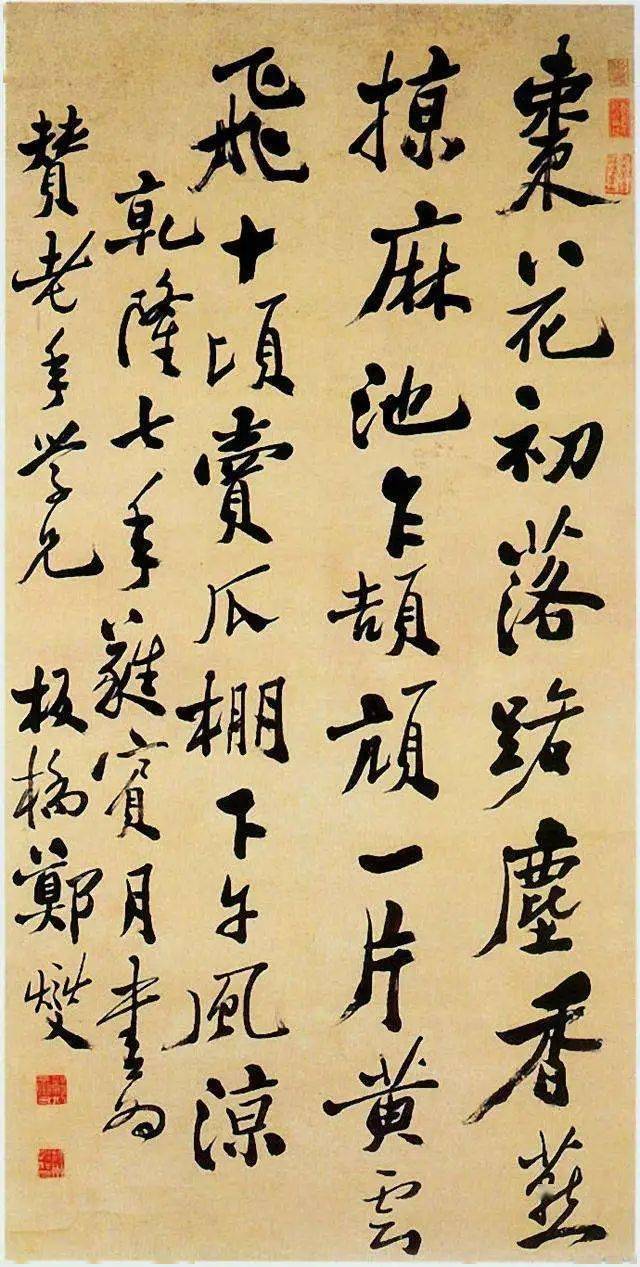 棗花初落路塵香燕
掠麻池乍頡頏一片黃雲
飛十頃賣瓜棚下午風涼
乾隆七年蕤賓月書為
贊老年學兄 板橋鄭燮